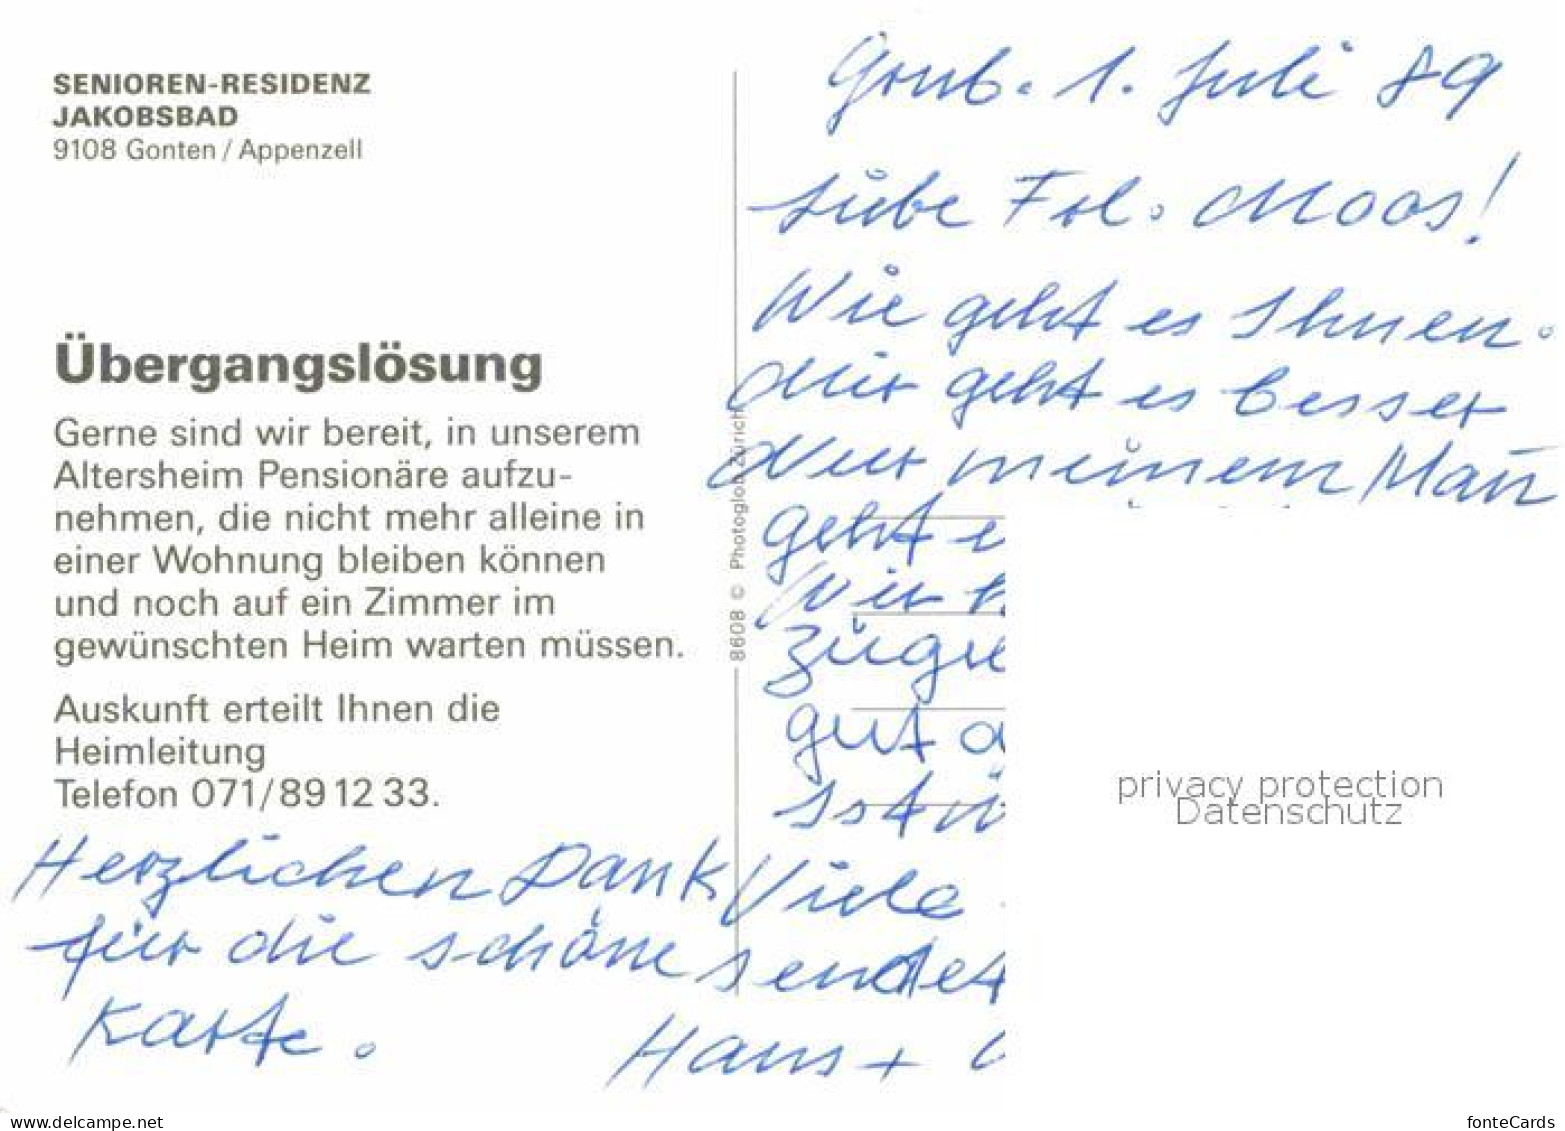 SENIOREN-RESIDENZ
JAKOBSBAD
9108 Gonten / Appenzell
Übergangslösung
Gerne sind wir bereit, in unserem
Altersheim Pensionäre aufzu-
nehmen, die nicht mehr alleine in
einer Wohnung bleiben können
und noch auf ein Zimmer im
gewünschten Heim warten müssen.
Auskunft erteilt Ihnen die
Heimleitung
Telefon 071/89 12 33.
Herzlichen Dank
für die schöne
Karte.
8608 © Photoglob Zürich
Grub. 1. Juli 89
Liebe Frl. Moos!
Wie geht es Ihnen.
Mir geht es besser
Nur meinem Mañ
geht e
Wir h
gut a
Viele
sendet
Hans +
privacy protection
Datenschutz
www.delcampe.net
fonteCards